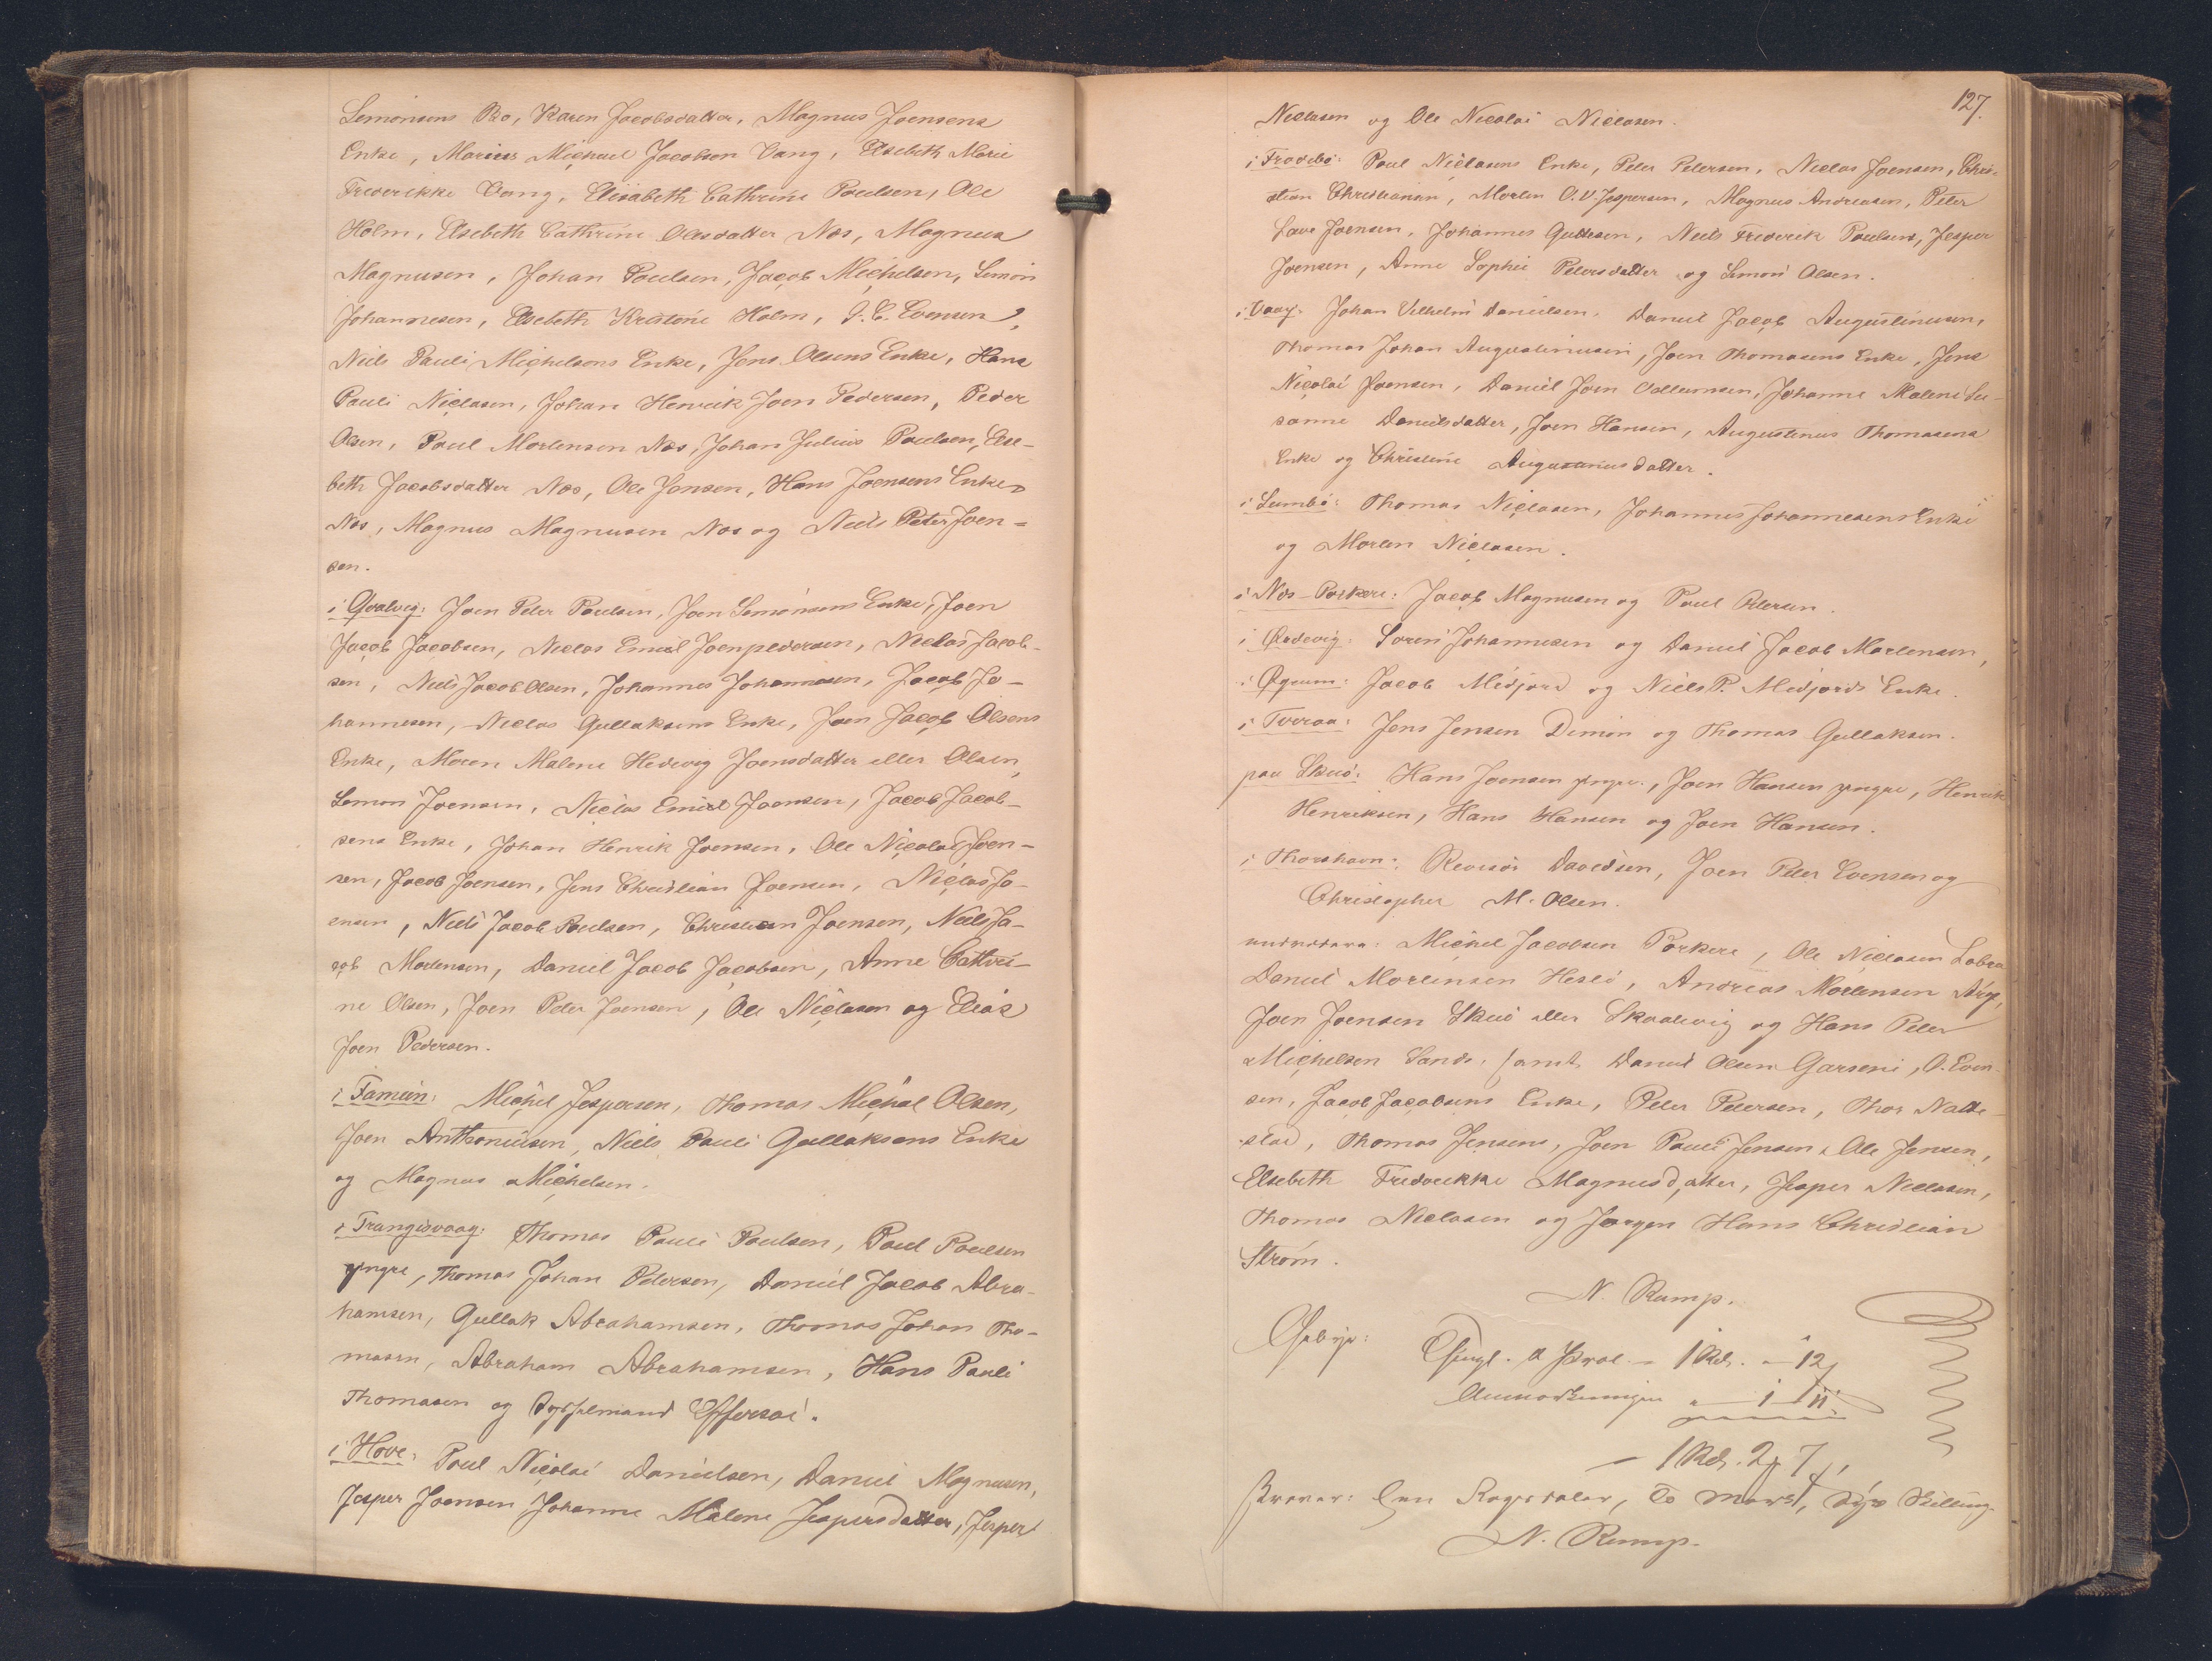 Semonsens Bo, Karen Jacobsdatter, Magnus Joensens
Enke, Marius Michael Jacobsen Vang, Elsebeth Marie
Frederikke Vang, Elisabeth Cathrine Poulsen, Ole
Holm, Elsebeth Cathrine Olesdatter Næs, Magnus
Magnusen, Johan Poulsen, Jacob Michelsen, Simon
Johannesen, Elsebeth Kristine Holm, J. C. Evensen,
Niels Pauli Michelsens Enke, Jens Olsens Enke, Hans
Pauli Niclasen, Johan Henrik Joen Pedersen, Peder
Olsen, Poul Mortensen Næs, Johan Julius Poulsen, Else-
beth Jacobsdatter Næs, Ole Jensen, Hans Joensens Enke
Næs, Magnus Magnusen Næs og Niels Peter Joen-
sen.
i Qvalvig: Joen Peter Poulsen, Joen Semonsens Enke, Joen
Jacob Jacobsen, Niclas Emiel Joenpedersen, Niclas Jacob-
sen, Niels Jacob Olsen, Johannes Johannesen, Jacob Jo-
hannesen, Niclas Gullaksens Enke, Joen Jacob Olsens
Enke, Maren Malene Hedevig Joensdatter eller Olsen,
Semon Joensen, Niclas Emiel Joensen, Jacob Jacob-
sens Enke, Johan Henrik Joensen, Ole Nicolai Joen-
sen, Jacob Joensen, Jens Christian Joensen, Niclas Jo-
ensen, Niels Jacob Poulsen, Christian Joensen, Niels Ja-
cob Mortensen, Daniel Jacob Jacobsen, Anne Cathri-
ne Olsen, Joen Peter Joensen, Ole Niclasen og Elias
Joen Pedersen.
i Famien: Michel Jespersen, Thomas Michal Olsen,
Joen Anthoniusen, Niels Pauli Gullaksens Enke
og Magnus Michelsen.
i Trangisvaag: Thomas Pauli Poulsen, Poul Poulsen
yngre, Thomas Johan Petersen, Daniel Jacob Abra-
hamsen, Gullak Abrahamsen, Thomas Johan Tho-
masen, Abraham Abrahamsen, Hans Pauli
Thomasen og Sysselmand Effersøe.
i Hove: Poul Nicolai Danielsen, Daniel Magnusen,
Jesper Joensen Johanne Malene Jespersdatter, Jesper
127.
Niclasen og Ole Nicolai Niclasen.
i Frodebø: Poul Niclasens Enke, Peter Petersen, Niclas Joensen, Chri-
stian Christiansen, Morten O. V. Jespersen, Magnus Andreasen, Peter
Lave Joensen, Johannes Guttesen, Niels Frederik Poulsens, Jesper
Joensen, Anne Sophie Petersdatter og Semon Olsen.
i Vaag: Johan Vilhelm Danielsen, Daniel Jacob Augustinusen,
Thomas Johan Augustinusen, Joen Thomasens Enke, Jens
Nicolai Joensen, Daniel Joen Vollumsen, Johanne Malene Su-
sanne Danielsdatter, Joen Hansen, Augustinus Thomasens
Enke og Christine Augustinusdatter.
i Sumbø: Thomas Niclasen, Johannes Johannesens Enke
og Morten Niclasen.
i Næs-Porkere: Jacob Magnusen og Poul Petersen.
i Ørdevig: Soren Johannesen og Daniel Jacob Mortensen,
i Øqvum: Jacob Midjord og Niels P. Midjords Enke.
i Tveraa: Jens Jensen Dimon og Thomas Gullaksen.
paa Skuø: Hans Joensen yngre, Joen Hansen yngre, Henrik
Henriksen, Hans Hansen og Joen Hansen.
i Thorshavn: Revisor Davidsen, Joen Peter Evensen og
Christopher M. Olsen.
andredere: Michel Jacobsen Porkere, Ole Niclasen Labra
Daniel Mortensen Hestø, Andreas Mortensen Arge,
Joen Joensen Skuø eller Skaalevig og Hans Peter
Michelsen Sand, samt Daniel Olsen Garseni, O. Even-
sen, Jacob Jacobsens Enke, Peter Petersen, Thor Natte-
stad, Thomas Jensens, Joen Pauli Jensen, Ole Jensen,
Elsebeth Fredrikke Magnusdatter, Jesper Niclasen,
Thomas Niclasen og Jørgen Hans Christian
Strøm.
N. Rump.
Gebyr: Thingl. & Prot. - 1 Rd. - 12
1 11
- 1 Rd. 2 7
Skriver: Een Rigsdaler, To Mark, Syv Skilling.
N. Rump.